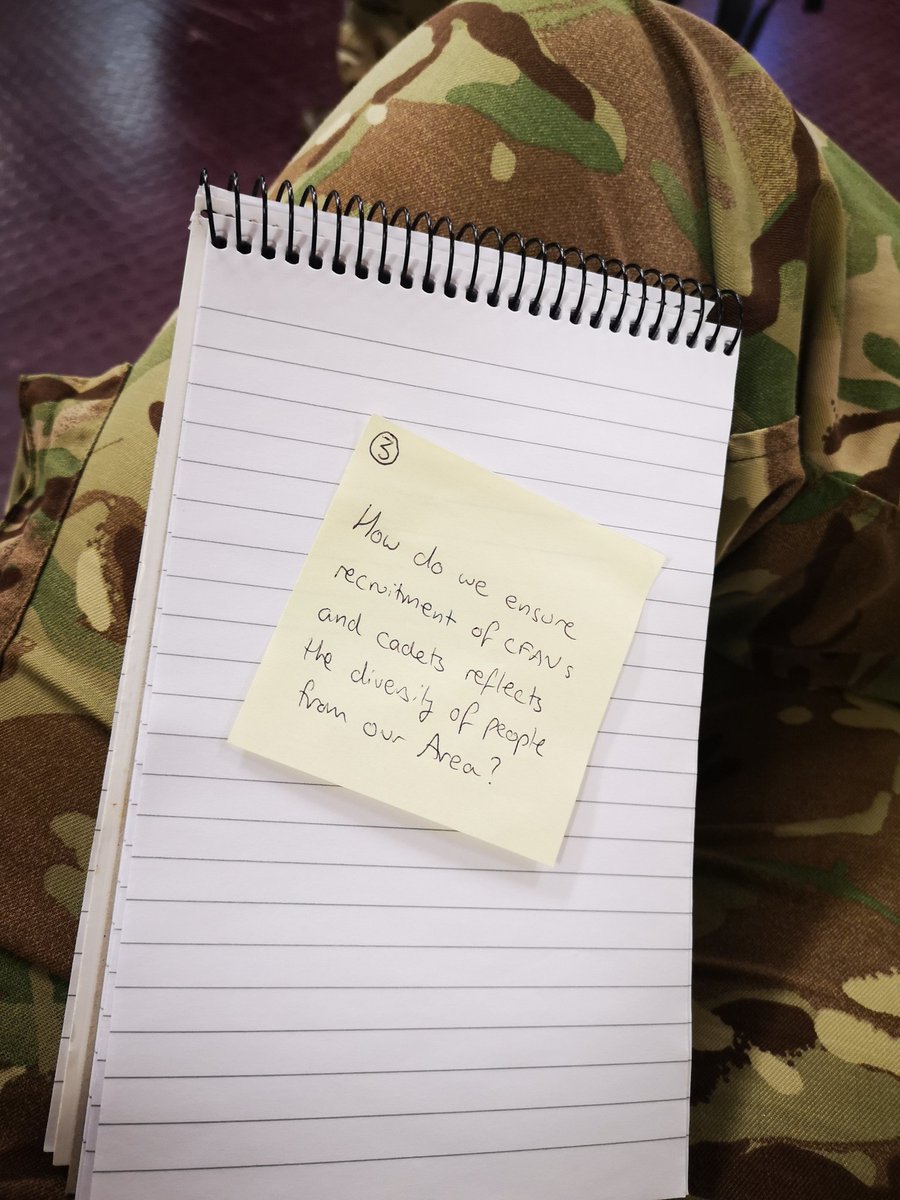 3
How do we ensure
recruitment of CFAVs
and cadets reflects
the diversity of people
from our Area?